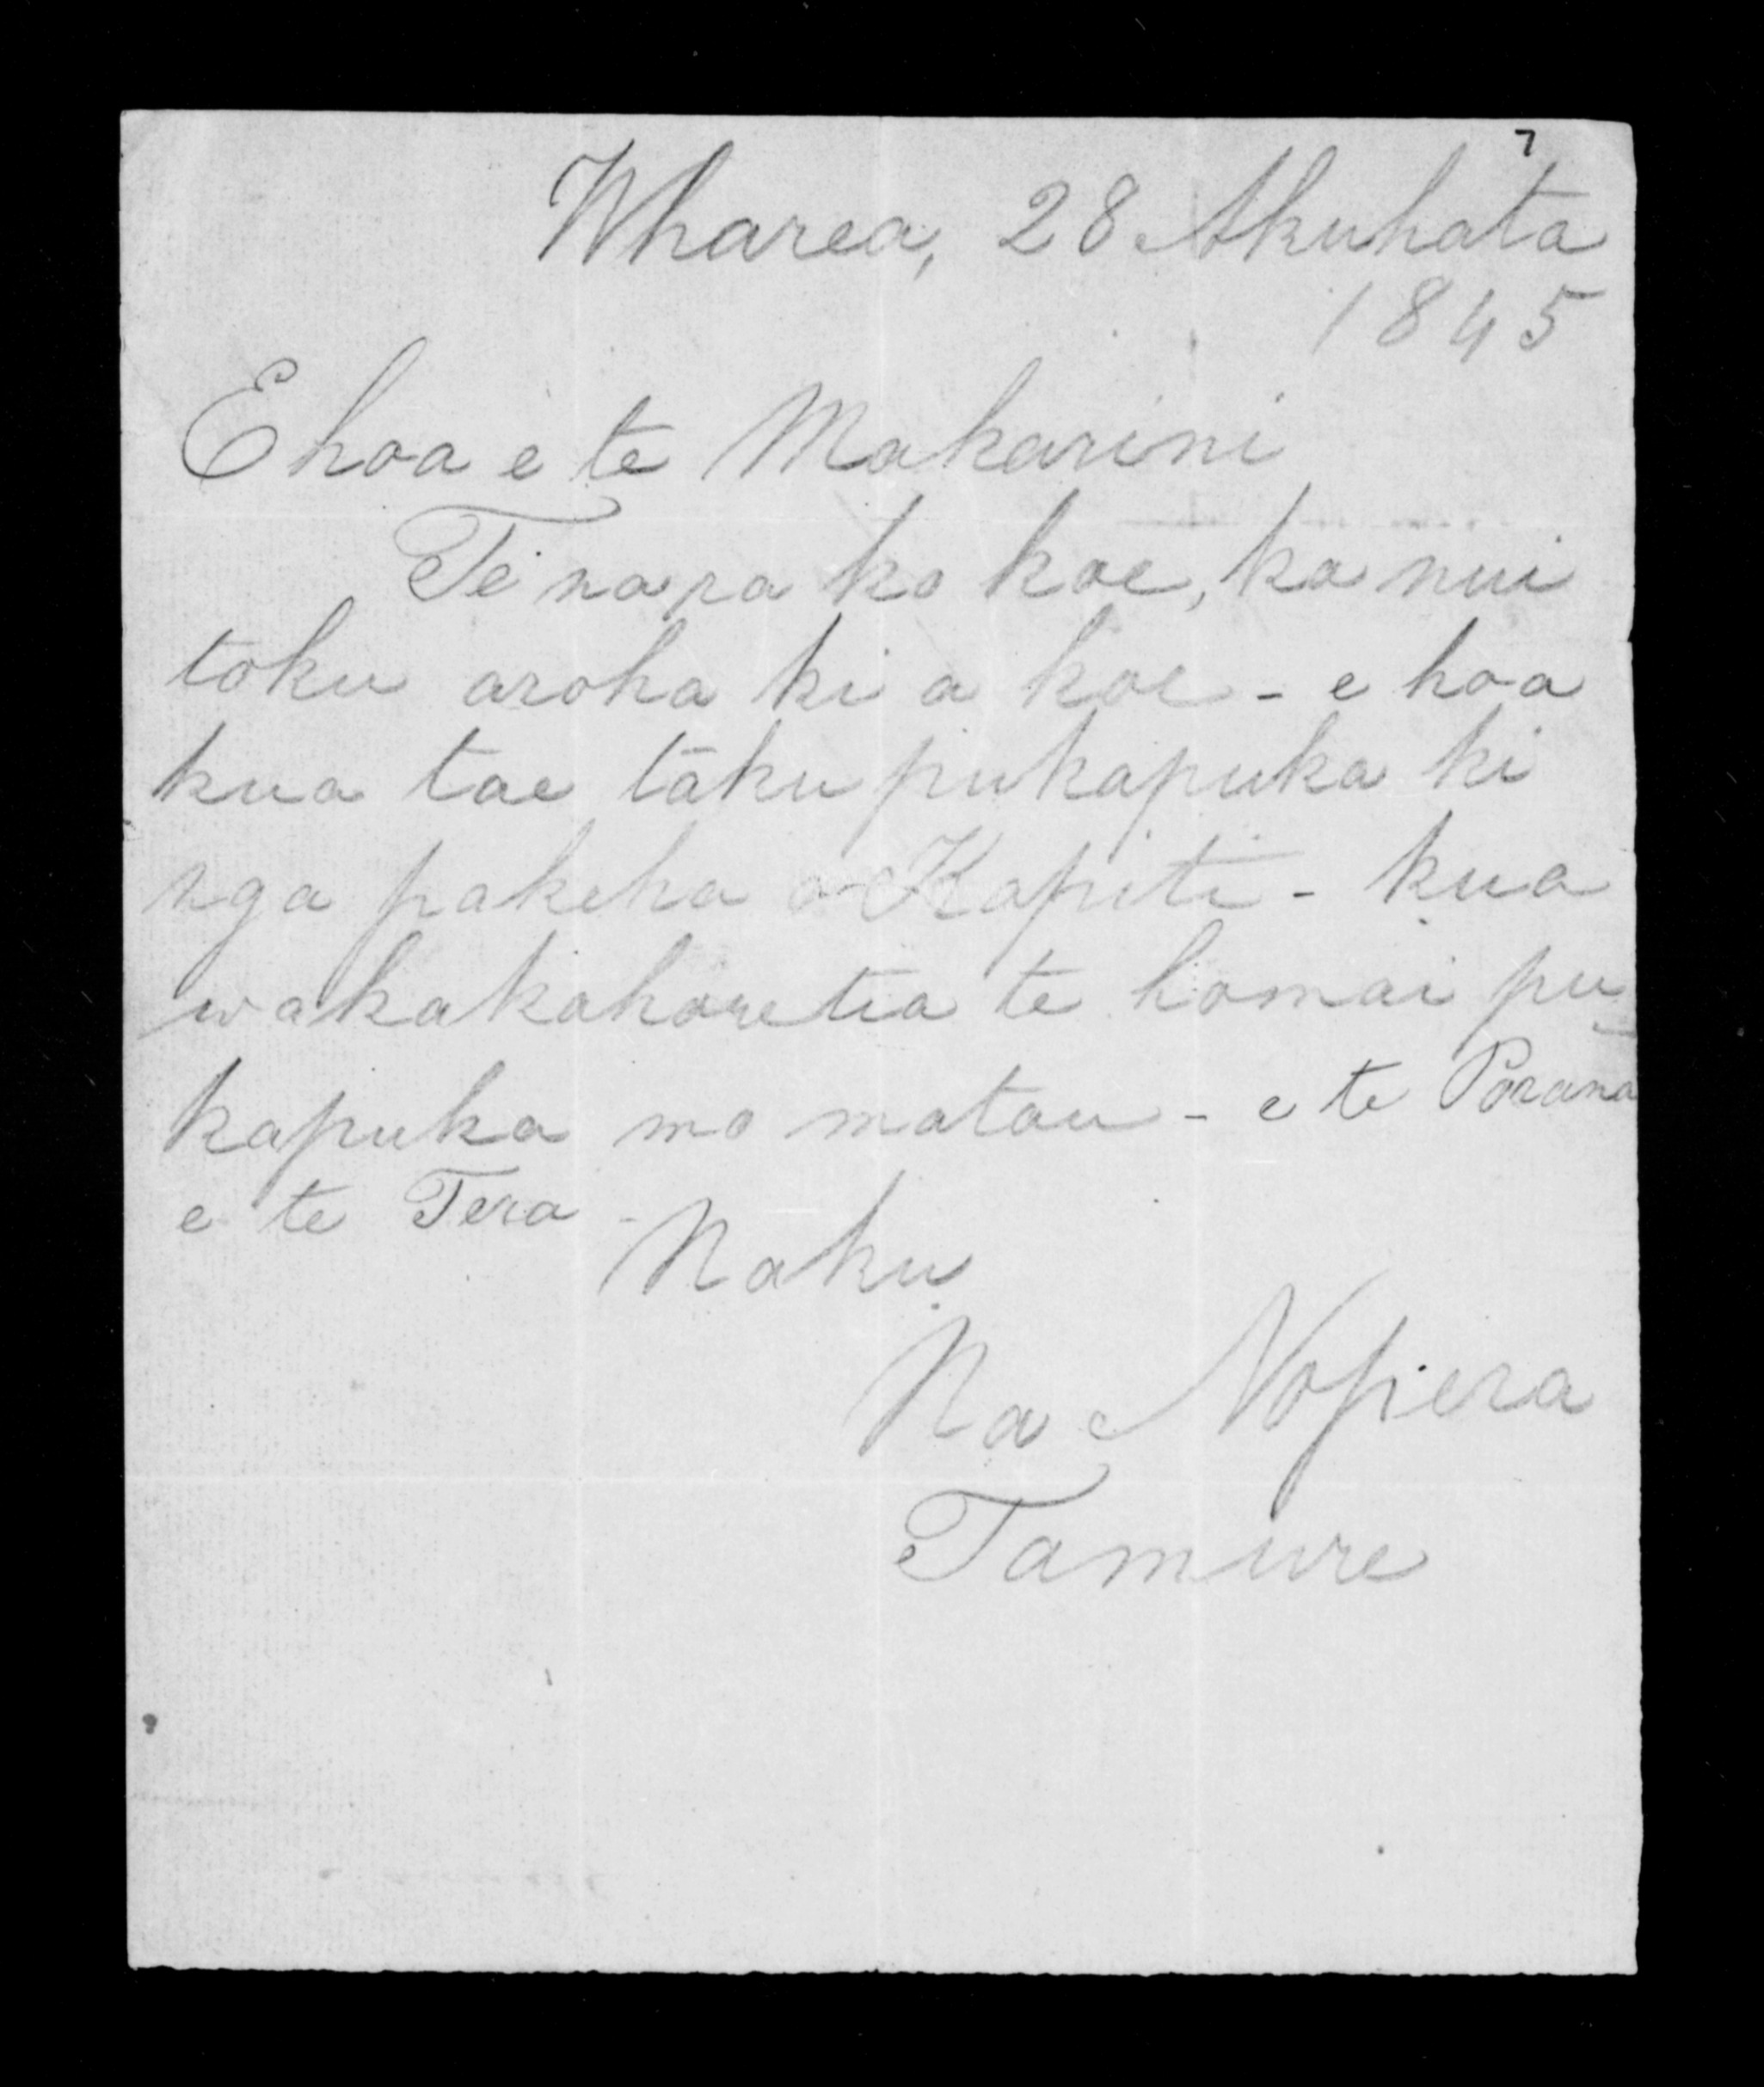 7
Wharea, 28 Akuhata
1845
E hoa e te Makarini
Te na ra ko koe, ka nui
toku aroha ki a koe - e hoa
kua tae tāku pukapuka ki
nga pakeha o Kapiti - kua
wakakahoretia te homai pu
kapuka mo matou - e te Porana
e te Tera -
Naku
Na Nopera
Tamure